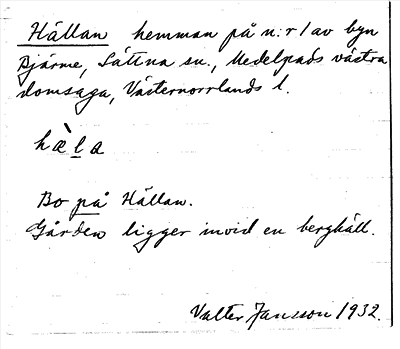 Hällan hemman på n:r 1 av byn
Bjärme, Sättna sn., Medelpads västra
domsaga, Västernorrlands l.
hæ̀la
Bo på Hällan.
Gården ligger invid en berghäll.
Valter Jansson 1932.